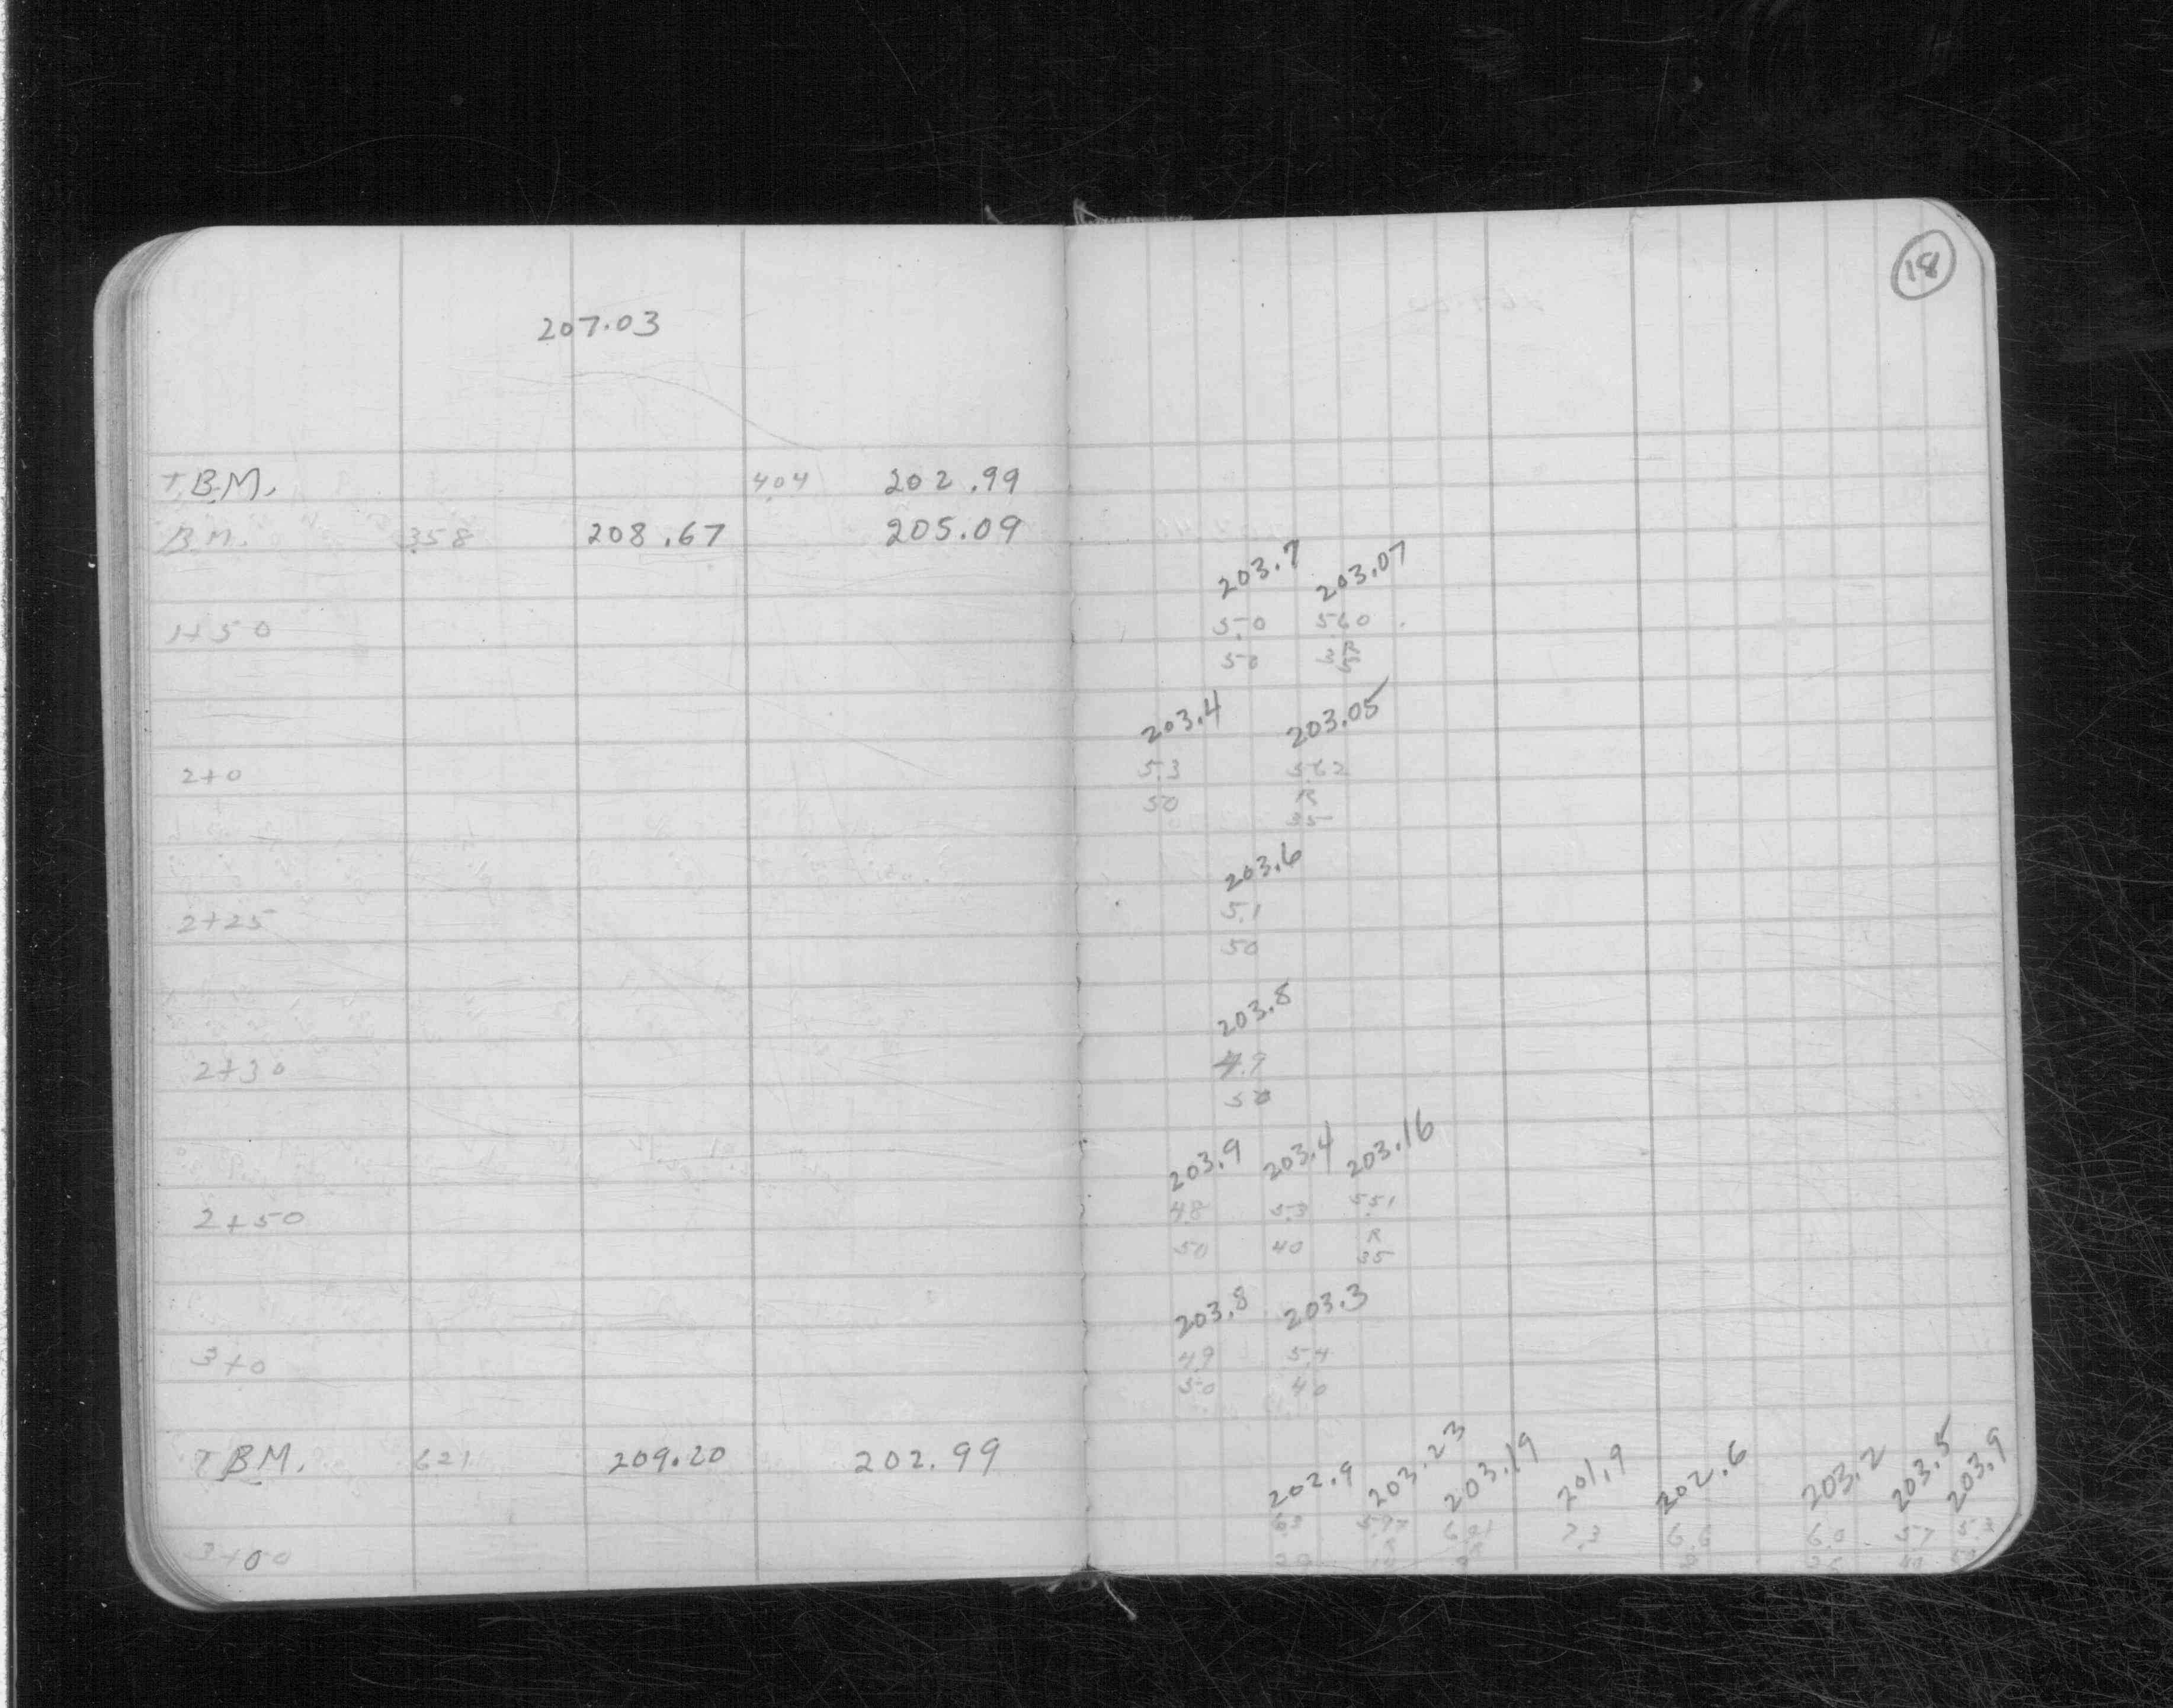 18
207.03
T.B.M. 4.04 202.99
B.M. 3.58 208.67 205.09
203.7 203.07
1+50 5.0 5.60
50 R
203.4 203.05
2+0 5.3 5.62
50 R
35
203.6
2+25 5.1
50
203.8
2+30 4.9
50
203.9 203.4 203.16
2+50 4.8 5.3 5.51
50 40 R
35
203.8 203.3
3+0 4.9 5.4
50 40
T.B.M. 6.21 209.20 202.99
202.9 203.23 203.19 201.9 202.6 203.2 203.5 203.9
3+00 6.3 5.97 6.01 7.3 6.6 6.0 5.7 5.3